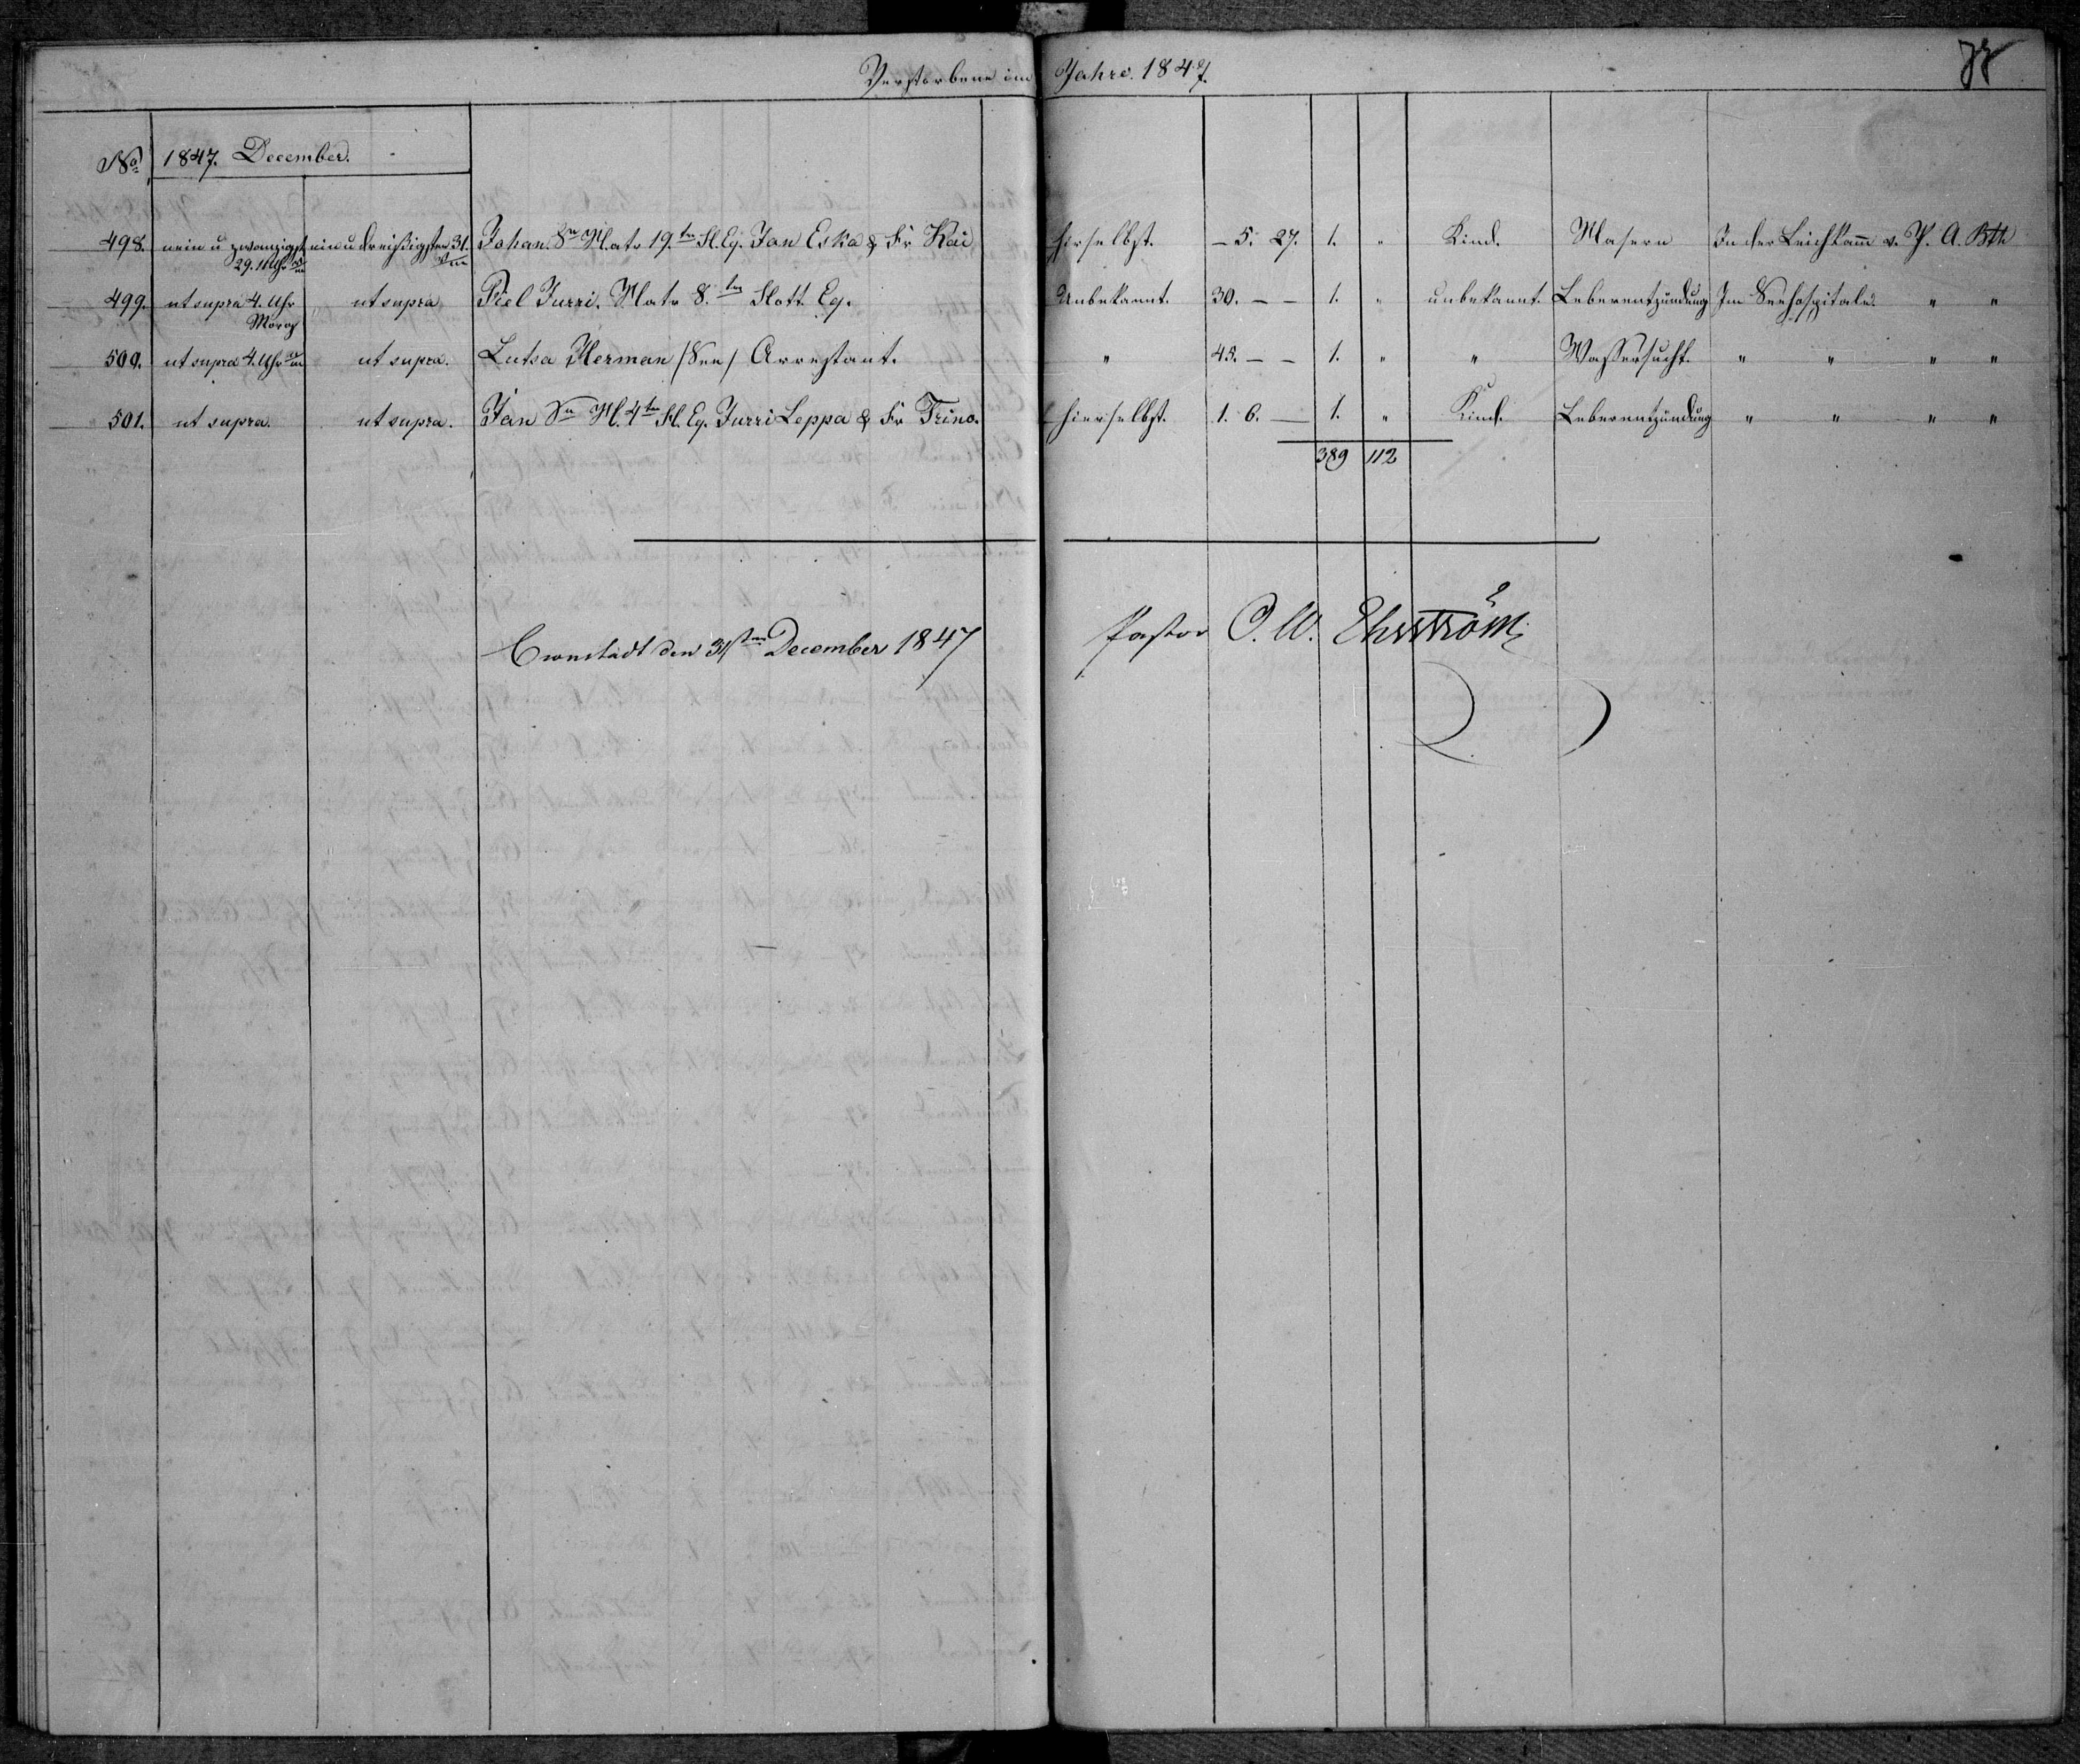 Verstorbene im Jahre. 1847.
No. 1847. December.
498. nein u zwanzigst ein u dreißigsten 31. Johan. Sn Matr 19.tn Fl. Eq. Jan Eska & Fr Kai hierselbst. – 5. 27. 1. " Kind. Masern In der Leichkam̄ v. P. A.
29. 11 Uhr Vm
499. ut supra 4. Uhr ut supra Piel Jurri. Matr 8.tn Flott Eq. Unbekannt. 30. – – 1. " unbekannt. Leberentzündung Im Seehospitale. " "
Morg
500. ut supra 4. Uhr ut supra. Lutsa Herman /See/ Arrestant. " 45. – – 1. " " Wassersucht. " " " "
501. ut supra. ut supra. Jan Sn M. 4tn Fl. Eq. Jurri Leppa & Fr Trino. hierselbst. 1. 6. – 1. " Kind. Leberentzündung " " " "
389 112
Cronstadt den 31sten December 1847 Pastor C. W. Ehrström